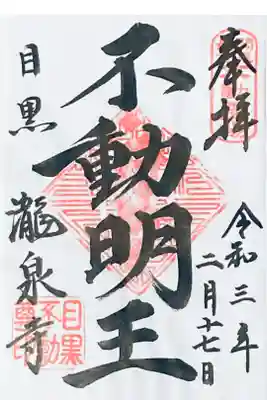 奉拝
令和三年
二月十七日
不動明王
目黒
瀧泉寺